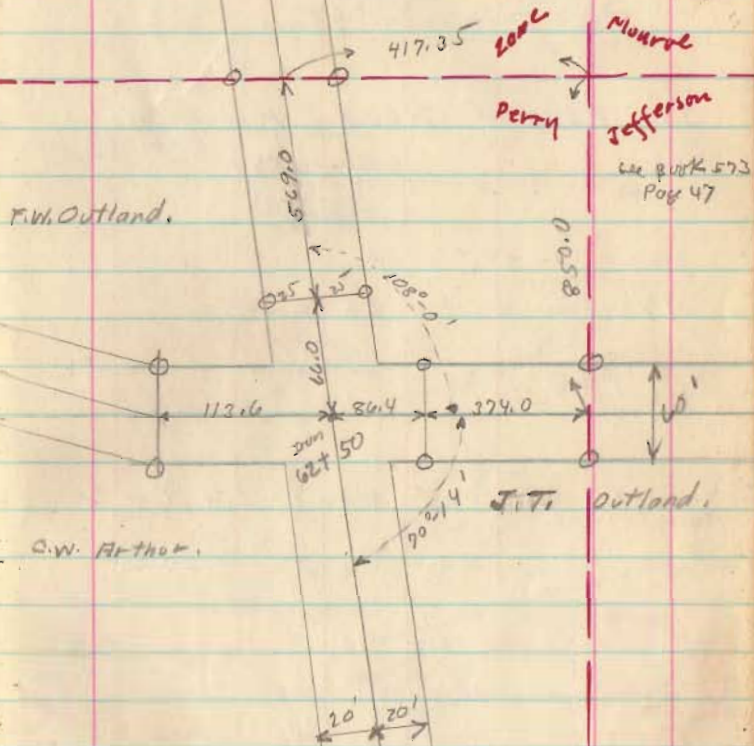 417.35
Zone
Monroe
Perry
Jefferson
see Book 573
Page 47
F.W. Outland.
569.0
850.0
25' 25'
108°-0'
113.6
86.4
374.0
62+50
70°-14'
J.T. Outland.
C.W. Arthor.
20' 20'